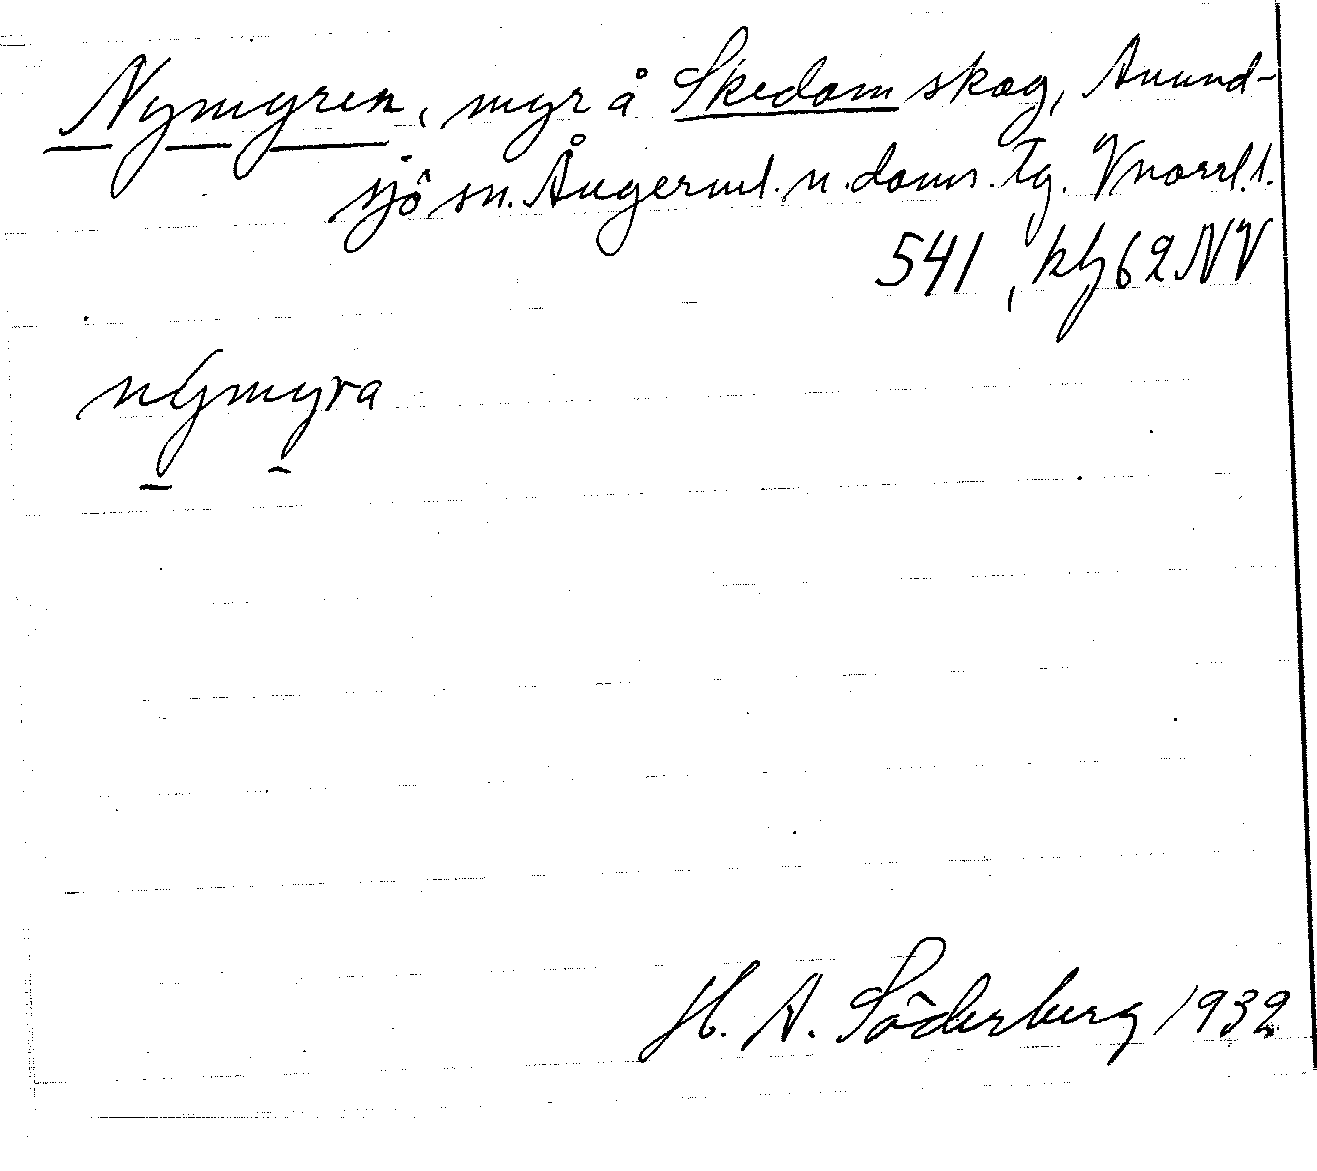 Nymyren, myr å Skedom skog, Anund-
sjö sn. Ångerml. n. doms. tg. Vnorrl. l.
541, kbl 62 NV
nýmyra
H. A. Söderberg 1932